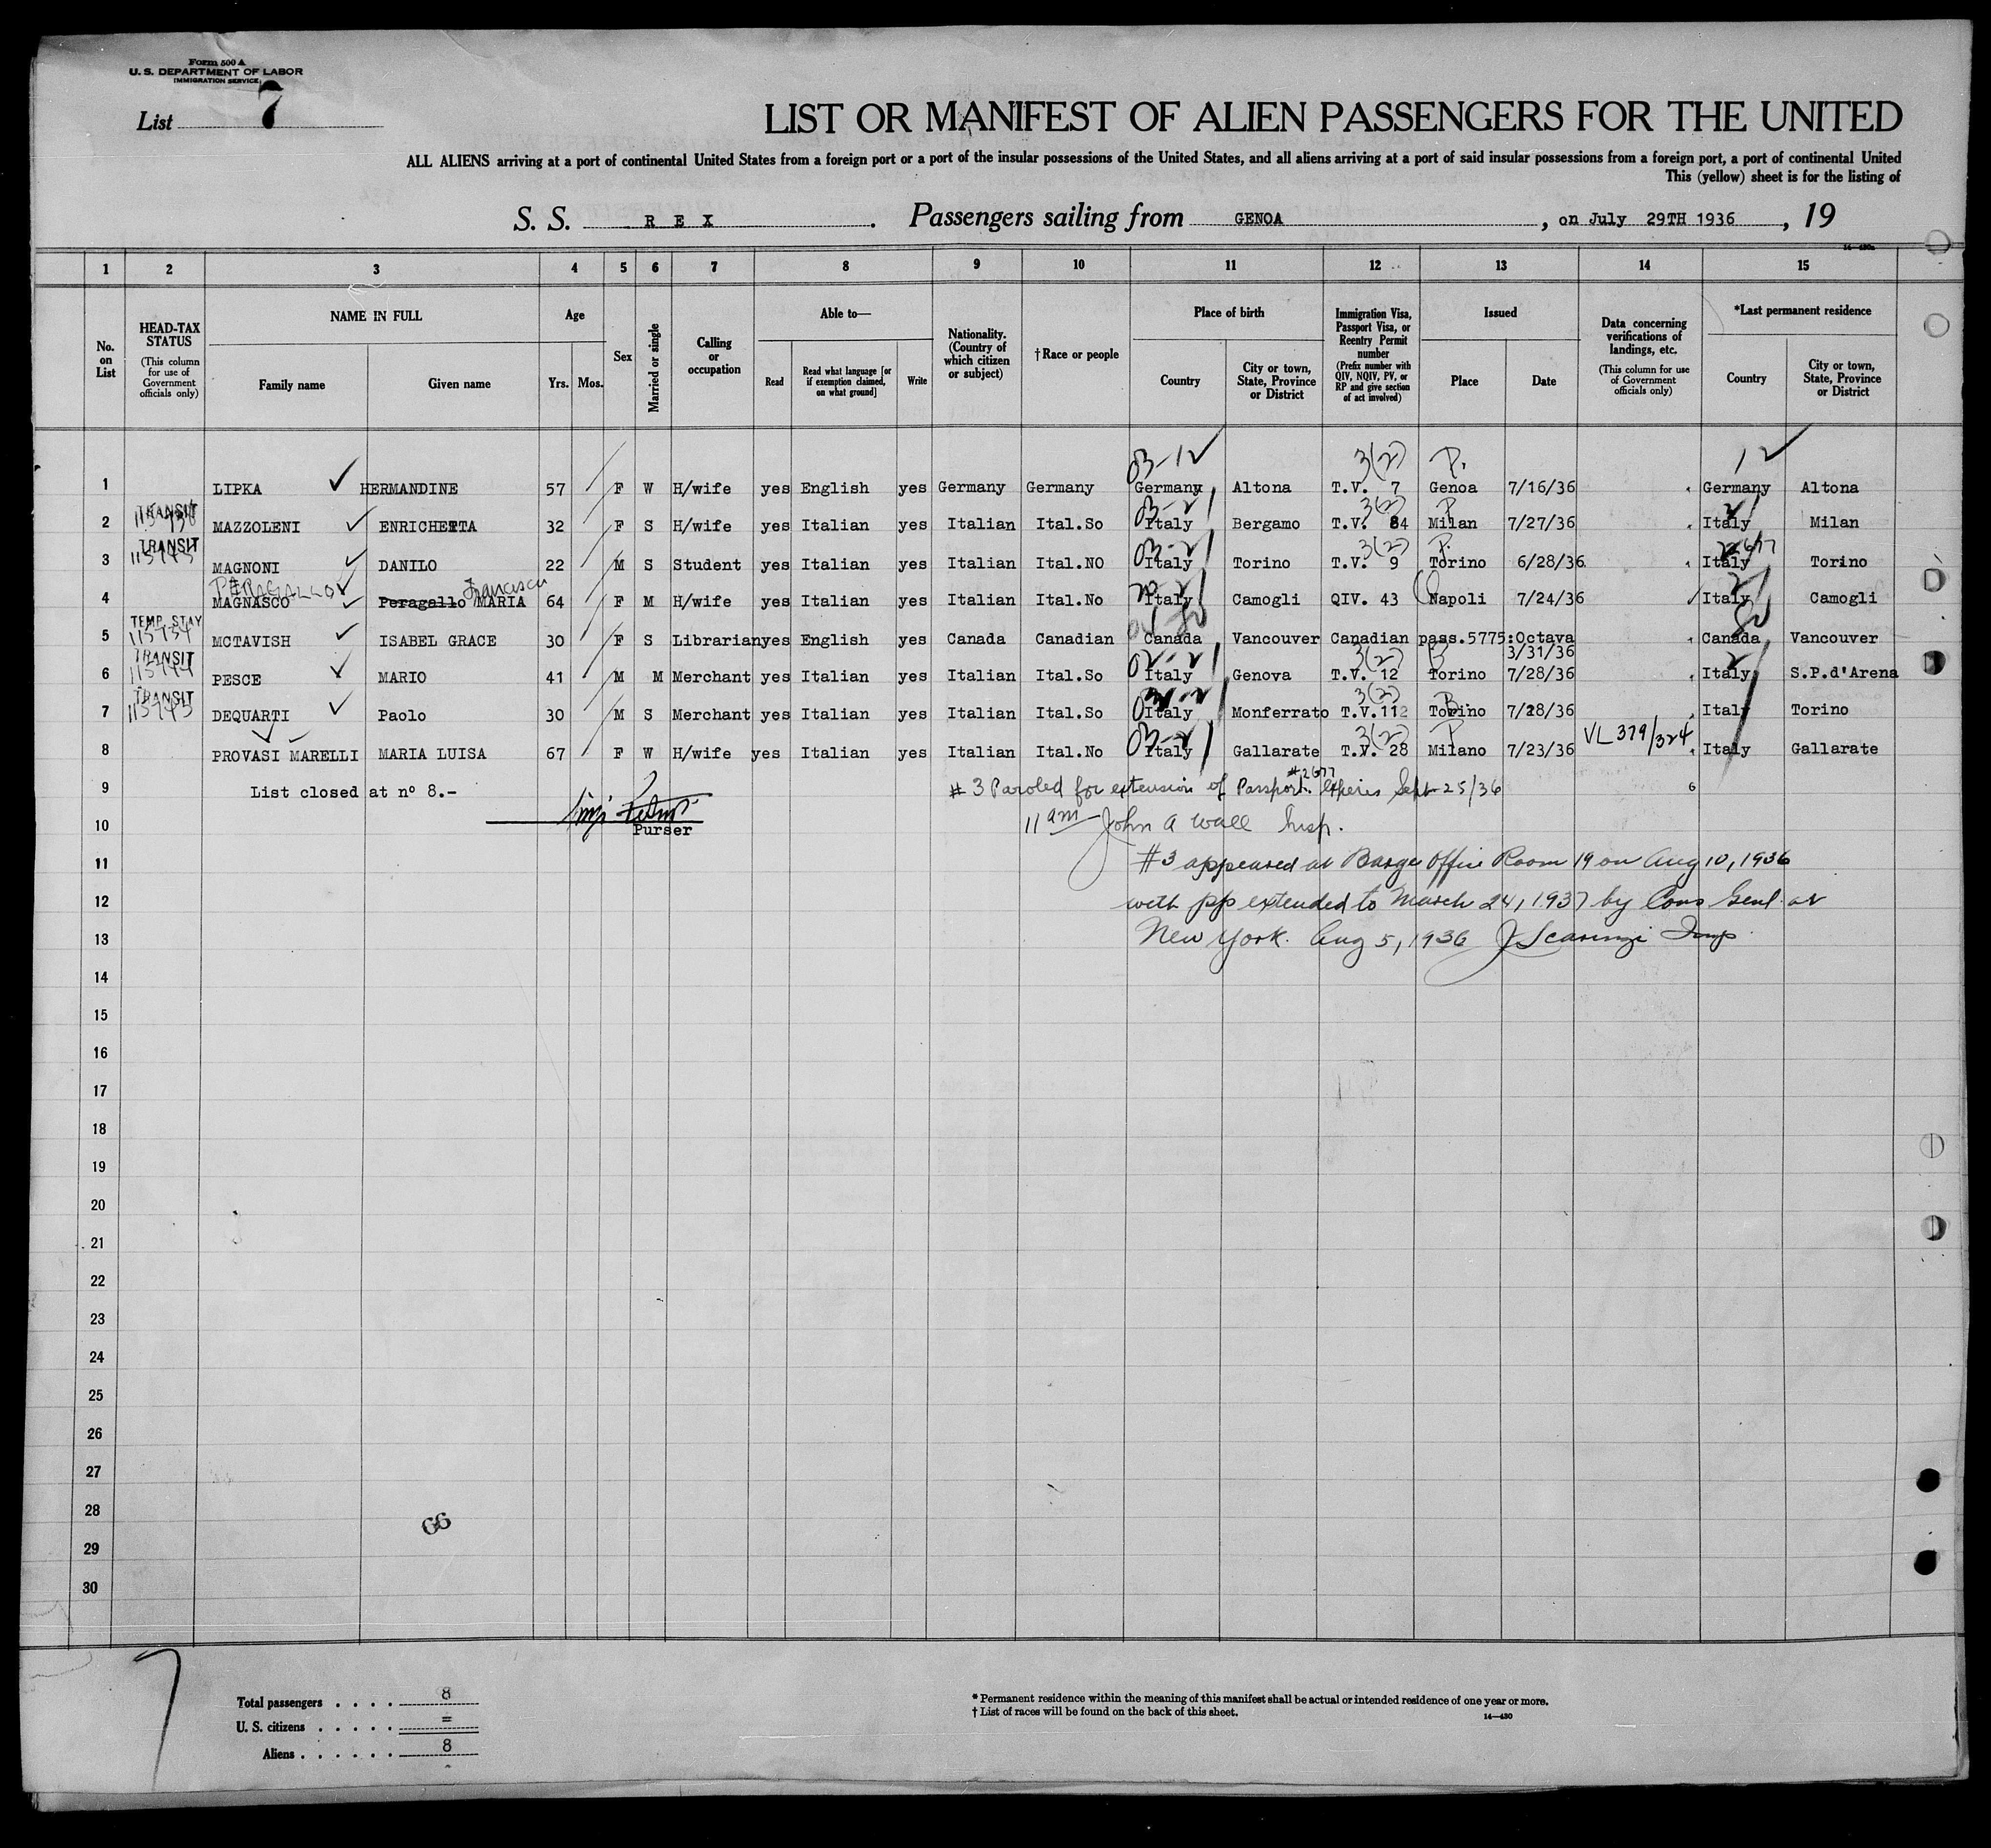 Form 500 A
U. S. DEPARTMENT OF LABOR
IMMIGRATION SERVICE
List 7
LIST OR MANIFEST OF ALIEN PASSENGERS FOR THE UNITED
ALL ALIENS arriving at a port of continental United States from a foreign port or a port of the insular possessions of the United States, and all aliens arriving at a port of said insular possessions from a foreign port, a port of continental United
This (yellow) sheet is for the listing of
S. S. REX. Passengers sailing from GENOA, on July 29TH 1936, 19
14—430a
1 2 3 4 5 6 7 8 9 10 11 12 13 14 15
No. on List
HEAD-TAX STATUS (This column for use of Government officials only)
NAME IN FULL Family name Given name
Age Yrs. Mos.
Sex
Married or single
Calling or occupation
Able to— Read Read what language [or if exemption claimed, on what ground] Write
Nationality. (Country of which citizen or subject)
†Race or people
Place of birth Country City or town, State, Province or District
Immigration Visa, Passport Visa, or Reentry Permit number (Prefix number with QIV, NQIV, PV, or RP and give section of act involved)
Issued Place Date
Data concerning verifications of landings, etc. (This column for use of Government officials only)
*Last permanent residence Country City or town, State, Province or District
03-12 3(2) P. 12
1 LIPKA HERMANDINE 57 F W H/wife yes English yes Germany Germany Germany Altona T.V. 7 Genoa 7/16/36 Germany Altona
TRANSIT 03-2 3(2) P 2
2 MAZZOLENI ENRICHETTA 32 F S H/wife yes Italian yes Italian Ital.So Italy Bergamo T.V. 84 Milan 7/27/36 Italy Milan
TRANSIT 03-2 3(2) P. 2677
3 MAGNONI DANILO 22 M S Student yes Italian yes Italian Ital.NO Italy Torino T.V. 9 Torino 6/28/36 Italy Torino
PERAGALLO Francesca
4 MAGNASCO Peragallo MARIA 64 F M H/wife yes Italian yes Italian Ital.No Italy Camogli QIV. 43 Napoli 7/24/36 Italy Camogli
TEMP STAY 80
115734
5 MCTAVISH ISABEL GRACE 30 F S Librarian yes English yes Canada Canadian Canada Vancouver Canadian pass.5775:Octava 3/31/36 Canada Vancouver
TRANSIT 3(2)
6 PESCE MARIO 41 M M Merchant yes Italian yes Italian Ital.So Italy Genova T.V. 12 Torino 7/28/36 Italy S.P.d'Arena
TRANSIT 3(2)
7 DEQUARTI Paolo 30 M S Merchant yes Italian yes Italian Ital.So Italy Monferrato T.V.112 Torino 7/28/36 Italy Torino
03-2 3(2) P
8 PROVASI MARELLI MARIA LUISA 67 F W H/wife yes Italian yes Italian Ital.No Italy Gallarate T.V. 28 Milano 7/23/36 VL 379/324 Italy Gallarate
#2677
9 List closed at nº 8.- # 3 Paroled for extension of Passport. Expires Sept 25/36 6
10 Purser 11 am John A Wall Insp.
11 #3 appeared at Barge Office Room 19 on Aug 10, 1936
12 with pp extended to March 24, 1937 by Cons Genl. at
13 New York. Aug 5, 1936 J Scaringi Insp
14
15
16
17
18
19
20
21
22
23
24
25
26
27
28
66
29
30
7
Total passengers . . . . 8
U. S. citizens . . . . . =
Aliens . . . . . . 8
* Permanent residence within the meaning of this manifest shall be actual or intended residence of one year or more.
† List of races will be found on the back of this sheet.
14—430